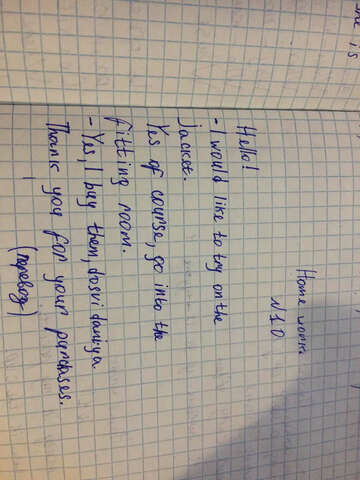 she is
Home work
N10
Hello!
- I would like to try on the
jacket.
Yes of course, go into the
fitting room.
- Yes, I buy them, dosvi daniya
Thank you for your purchases.
(перевод)